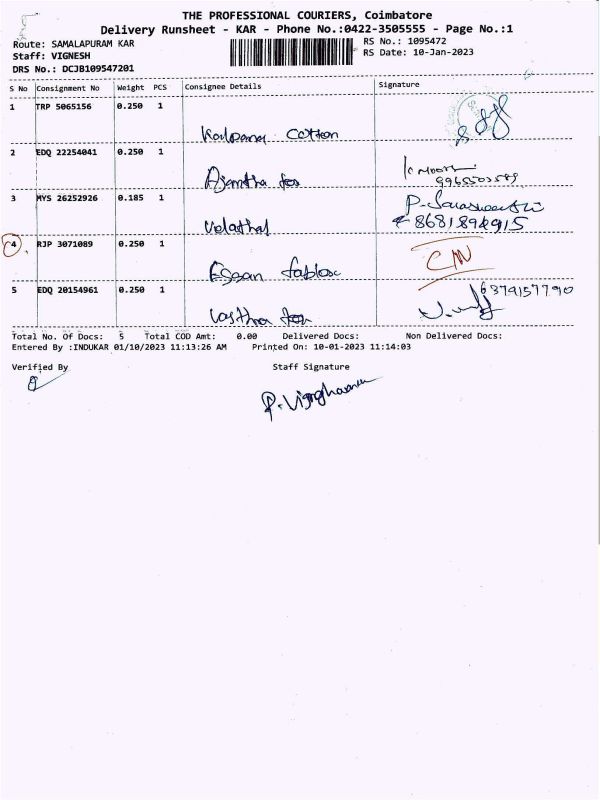 THE PROFESSIONAL COURIERS, Coimbatore
Delivery Runsheet - KAR - Phone No.:0422-3505555 - Page No.:1
Route: SAMALAPURAM KAR
RS No.: 1095472
Staff: VIGNESH
RS Date: 10-Jan-2023
DRS No.: DCJB109547201
S No Consignment No Weight PCS Consignee Details Signature
1 TRP 5065156 0.250 1
Kalpana Cotton
2 EDQ 22254041 0.250 1
Ajantha Tex
9965503589
3 MYS 26252926 0.185 1
P. Saraswathi
8681894915
4 RJP 3071089 0.250 1
CIN
5 EDQ 20154961 0.250 1
6379157790
Vastra Tex
Total No. Of Docs: 5 Total COD Amt: 0.00 Delivered Docs: Non Delivered Docs:
Entered By :INDUKAR 01/10/2023 11:13:26 AM Printed On: 10-01-2023 11:14:03
Verified By Staff Signature